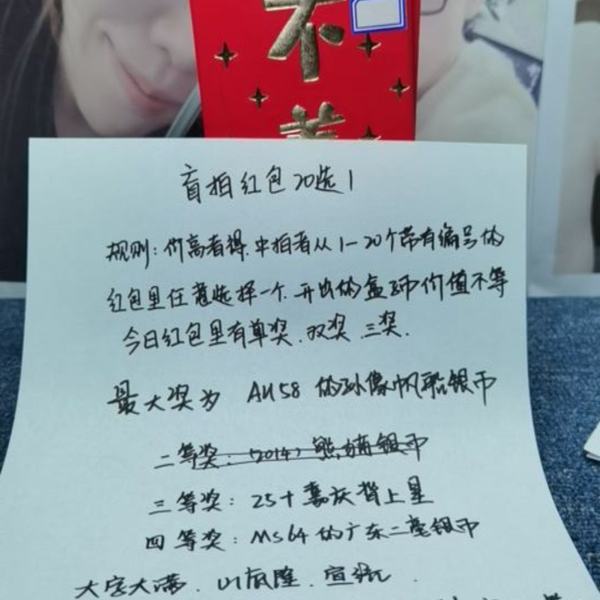 不
盲拍红包20选1
规则:价高者得.中拍者从1-20个带有编号的
红包里任意选择一个.开出的盒币价值不等
今日红包里有单奖.双奖.三奖.
最大奖为 AU58 的孙像帆船银币
二等奖:(2014)熊猫银币
三等奖:25+嘉庆背上星
四等奖:MS64的广东二毫银币
大字大满.